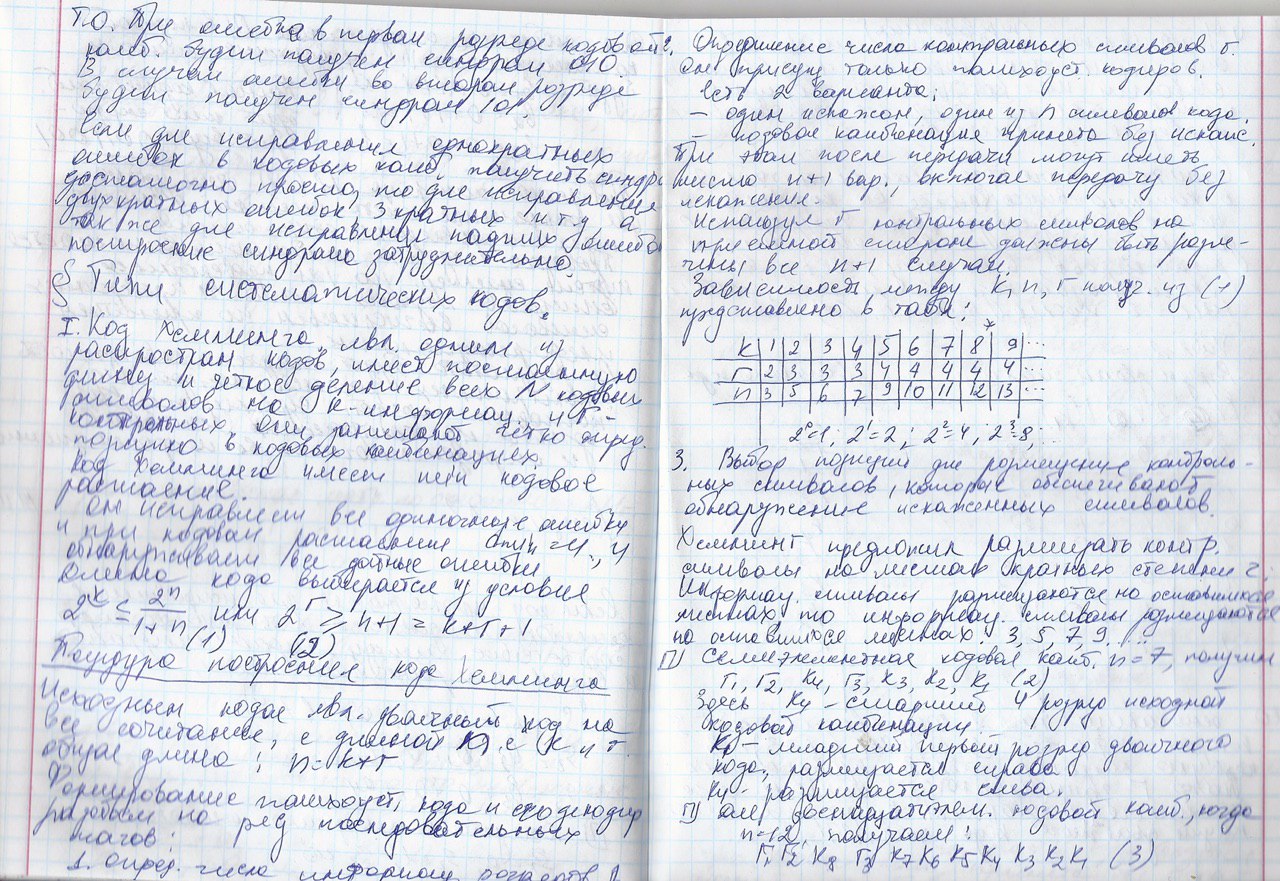 Т.О. При ошибке в первом разряде кодовой
комб. будет получен синдром 010
В случаи ошибки во втором разряде
будет получен синдром 101.
Если для исправления однократных
ошибок в кодовых комб. получить синдр
достаточно просто, то для исправления
двухкратных ошибок, 3 кратных и т.д. а
так же для исправления ошибо
построение синдрома затруднительно.
§ Типы систематических кодов.
I. Код Хемминга, явл. одним из
распростран кодов, имеет постоянную
длину и чёткое деление всех N кодовых
символов на к-информац. и r-
контрольных, они занимают чётко опред.
позицию в кодовых комбинациях.
Код Хемминга имеет кодовое
растояние.
он исправляет все одиночные ошибки
и при кодовом расстоянии dmin = 4
обнаруживает все ошибки
Длинна кода выбирается из условия
2^k ≤ 2^n/(1+n) или 2^r ≥ n+1 = k+r+1
(1) (2)
построения кода Хемминга
Исходным кодом явл. двоичный код на
все сочетания, с длинной
общая длина: n = k+r
Формирование помехоуст. кода и
на ряд последовательных
шагов:
1. опред. числа информац.
2. Определение числа контрольных символов r.
Он присущ только помехоуст. кодиров.
Есть 2 варианта:
- один искажён, один из n символов кода.
- кодовая комбинация принята без искаж.
При этом после передачи могут иметь
место n+1 вар., включая передачу без
искажения.
Используя r контрольных символов на
приёмной стороне должны быть разли-
чимы все n+1 случаи.
Зависимость между k, n, r из (1)
представлено в табл:
K 1 2 3 4 5 6 7 8* 9 ...
r 2 3 3 3 4 4 4 4 4 ...
n 3 5 6 7 9 10 11 12 13 ...
2^0=1; 2^1=2; 2^2=4; 2^3=8;
3. Выбор позиций для размещения контроль-
ных символов, которые обеспечивают
обнаружение искаженных символов.
Хемминг предложил размещать контр.
символы на местах кратных степени 2;
Информац. символы размещаются на оставшихся
местах то информац. символы размещаются
на оставшихся местах: 3, 5, 7, 9 ...
П) Семиэлементная кодовая комб. n=7, получим
r1, r2, K4, r3, K3, K2, K1 (2)
Здесь K4 - старший 4 разряд исходной
кодовой комбинации
K1 - младший первый разряд двоичного
кода, размещается справа
K4 - размещается слева.
П) для двенадцатиэлем. кодовой комб., когда
n=12, получаем:
r1 r2 K8 r3 K7 K6 K5 K4 K3 K2 K1 (3)